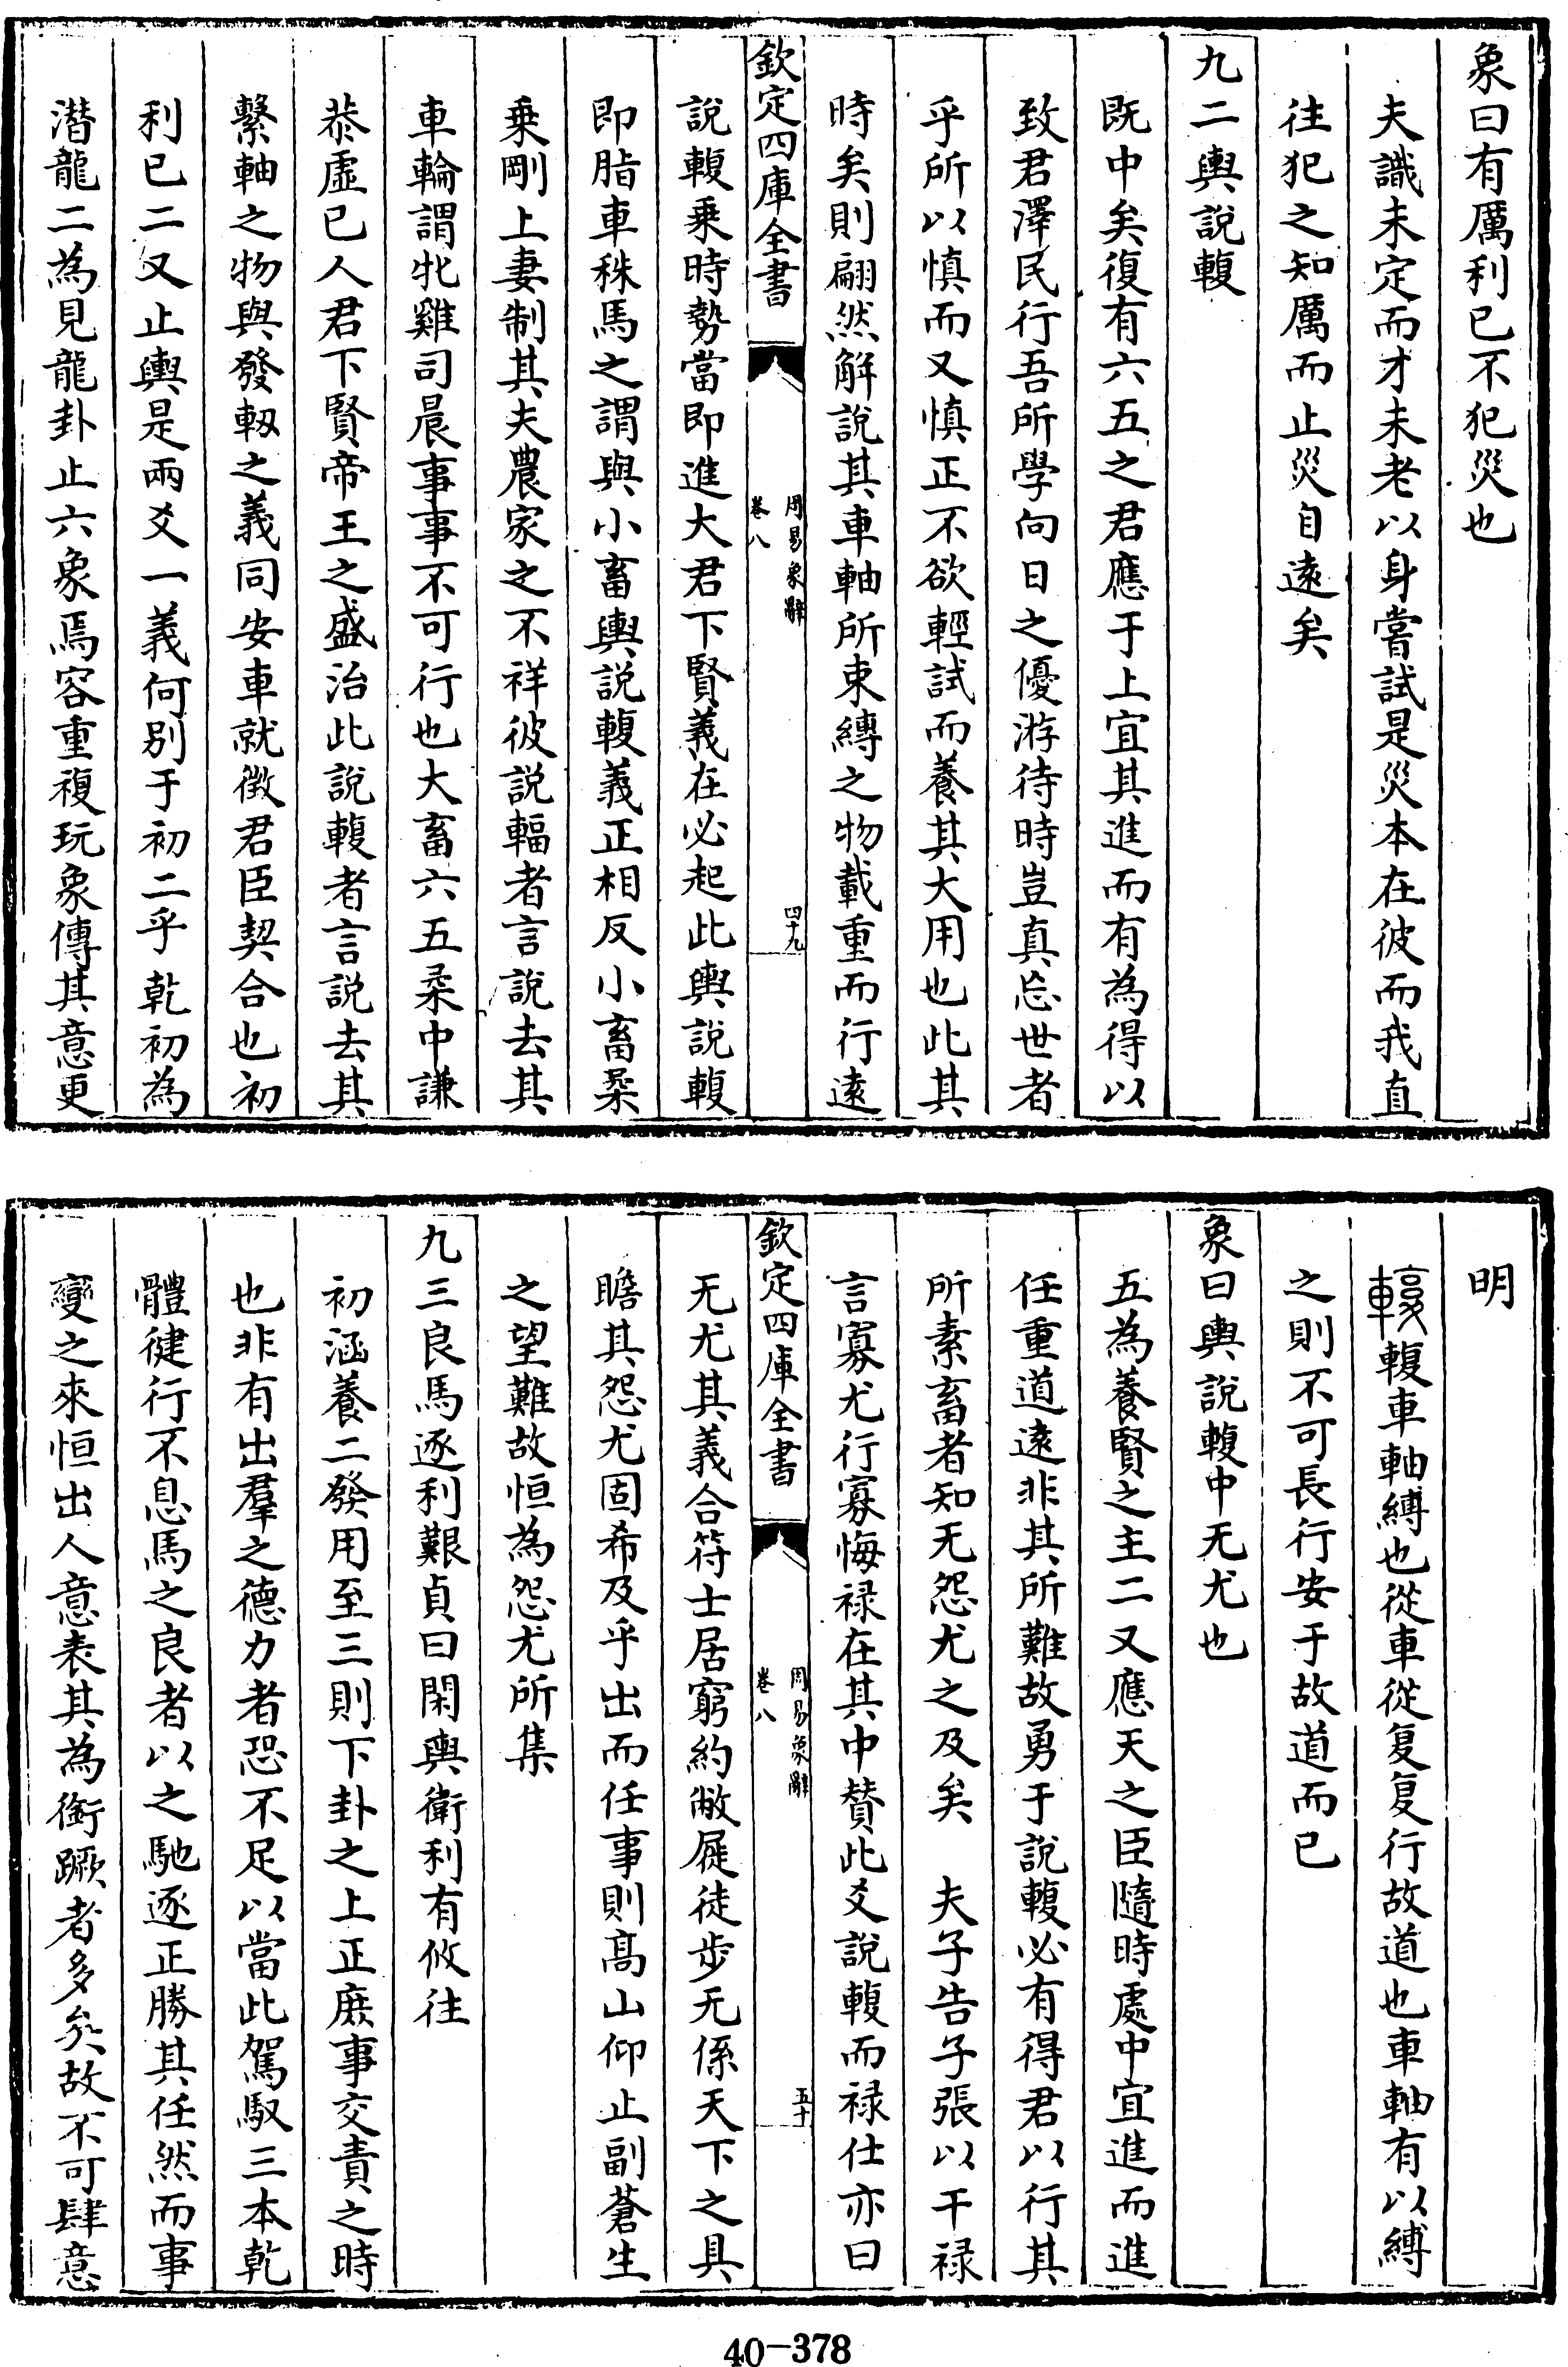 象曰有厲利已不犯災也
夫識未定而才未老以身嘗試是災本在彼而我直
往犯之知厲而止災自遠矣
九二輿說輹
既中矣復有六五之君應于上宜其進而有為得以
致君澤民行吾所學向日之優游待時豈真忘世者
乎所以慎而又慎正不欲輕試而養其大用也此其
時矣則翩然解說其車軸所束縛之物載重而行遠
欽定四庫全書
周易象辭
卷八
四十九
說輹乗時勢當即進大君下賢義在必起此輿說輹
即脂車秣馬之謂與小畜輿說輹義正相反小畜柔
乗剛上妻制其夫農家之不祥彼説輻者言說去其
車輪謂牝雞司晨事事不可行也大畜六五柔中謙
恭虛已人君下賢帝王之盛治此說輹者言説去其
繫軸之物與發軔之義同安車就徴君臣契合也初
利已二又止輿是兩爻一義何別于初二乎乾初為
潛龍二為見龍卦止六象焉容重複玩象傳其意更
明
𨏈輹車軸縛也從車從复复行故道也車軸有以縛
之則不可長行安于故道而已
象曰輿說輹中无尤也
五為養賢之主二又應天之臣隨時處中宜進而進
任重道遠非其所難故勇于說輹必有得君以行其
所素畜者知无怨尤之及矣　夫子告子張以干祿
言寡尤行寡悔禄在其中賛此爻說輹而禄仕亦曰
欽定四庫全書
周易象辭
卷八
五十
无尤其義合符士居窮約敝屣徒步无係天下之具
瞻其怨尤固希及乎出而任事則髙山仰止副蒼生
之望難故恒為怨尤所集
九三良馬逐利艱貞曰閑輿衛利有攸往
初涵養二發用至三則下卦之上正庶事交責之時
也非有出羣之德力者恐不足以當此駕馭三本乾
體健行不息馬之良者以之馳逐正勝其任然而事
變之來恒出人意表其為銜蹶者多矣故不可肆意
40-378